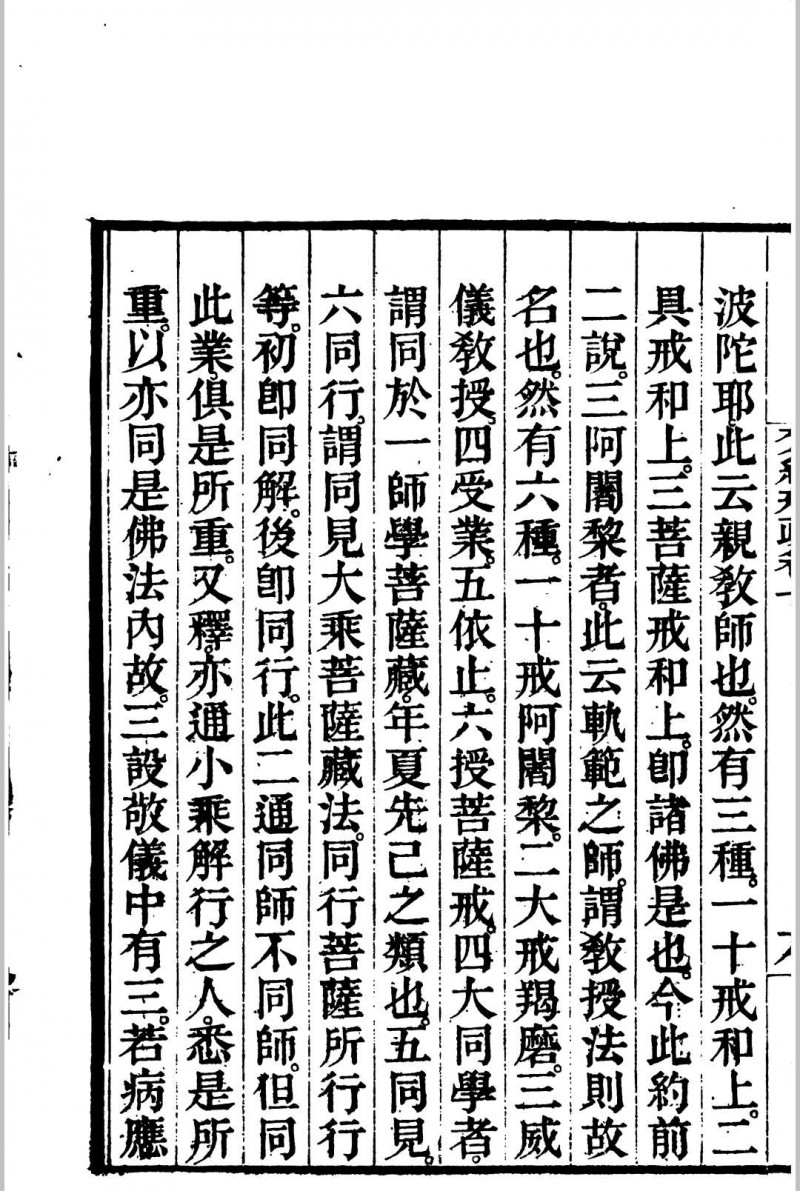 波陀耶。此云親教師也。然有三種。一十戒和上。二
具戒和上。三菩薩戒和上。卽諸佛是也。今此約前
二說。三阿闍黎者。此云軌範之師。謂教授法則故
名也。然有六種。一十戒阿闍黎。二大戒羯磨。三威
儀教授。四受業。五依止。六授菩薩戒。四大同學者。
謂同於一師學菩薩藏。年夏先己之類也。五同見。
六同行。謂同見大乘菩薩藏法。同行菩薩所行行
等。初卽同解。後卽同行。此二通同師不同師。但同
此業。俱是所重。又釋。亦通小乘解行之人。悉是所
重。以亦同是佛法內故。三設敬儀中有三。若病應